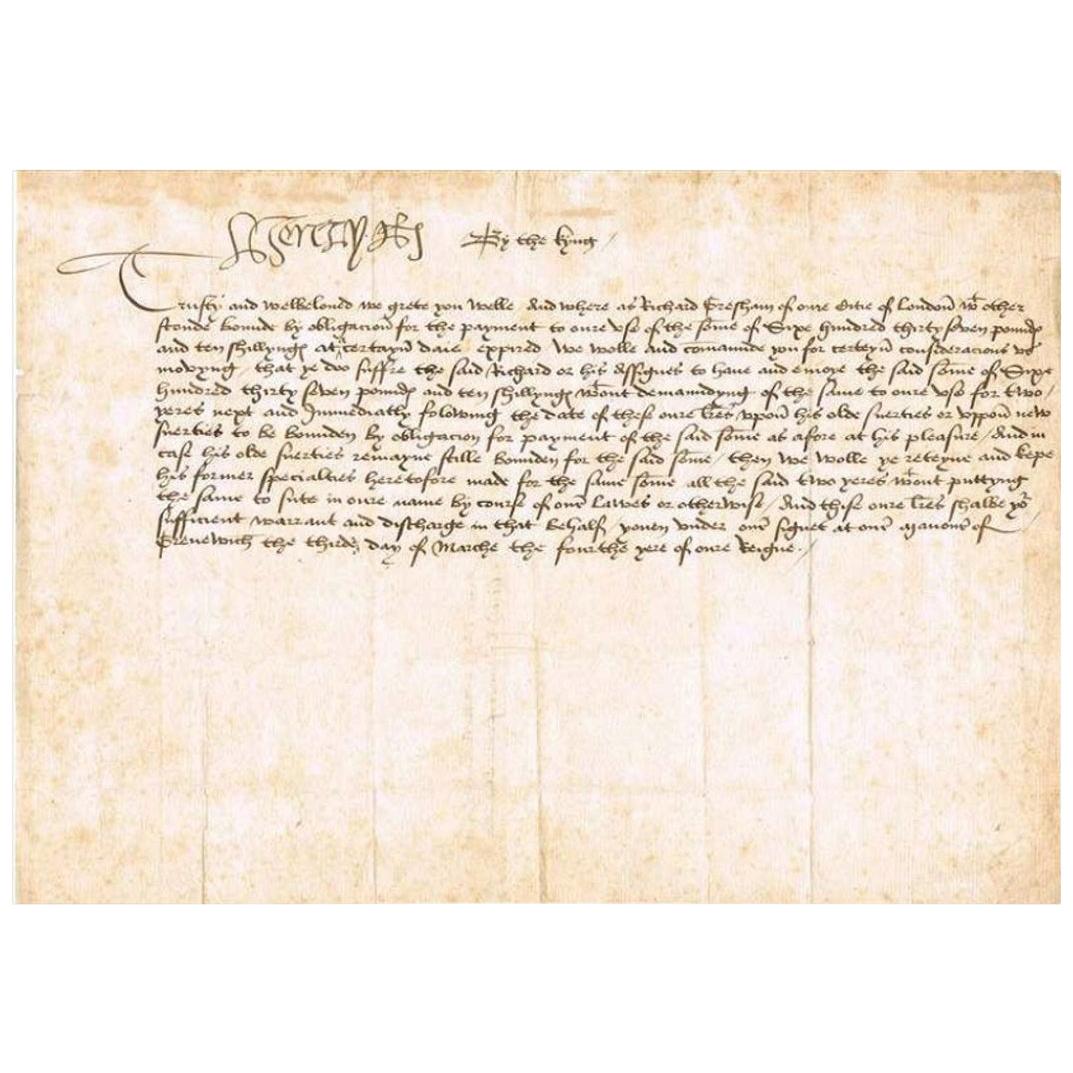 Henry R By the kyng /
Trusty and welbeloued we grete you welle And where as Richard Gresham of oure Citie of London wt other
stonde bounde by obligacion for the payment to oure vse of the some of Sixe hundred thirty seven poundes
and ten shillynges at a certayn daie expired We wolle and comaunde you for certeyn consideracions vs
movyng / that ye doo suffre the said Richard or his Assignes to haue and enioye the said some of Sixe
hundred thirty seven poundes and ten shillynges wtout demaundyng of the same to oure vse for two /
yeres next and Immediatly folowing the date of these oure lres vpon his olde suerties or vppon new
suerties to be bounden by obligacion for payment of the said some as afore at his pleasure / And in
case his olde suerties remayne stille bounden for the said some / then we wolle ye reteyne and kepe
his former specialties heretofore made for the same some all the said two yeres wtout puttyng
the same to sute in oure name by course of our Lawes or otherwise / And thise oure lres shalbe yor
sufficient warrant and discharge in that behalf / yeuen vnder our signet at our Manour of
Grenewich the thirde day of Marche the fourthe yere of oure Reigne . /